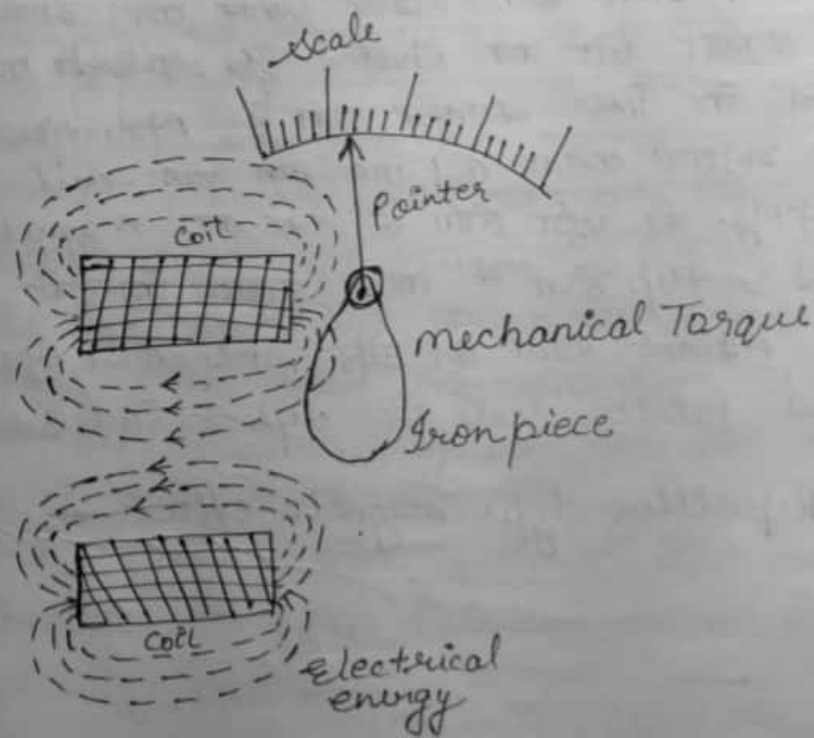 Scale
Pointer
Coil
Mechanical Torque
Iron piece
Coil
Electrical
energy